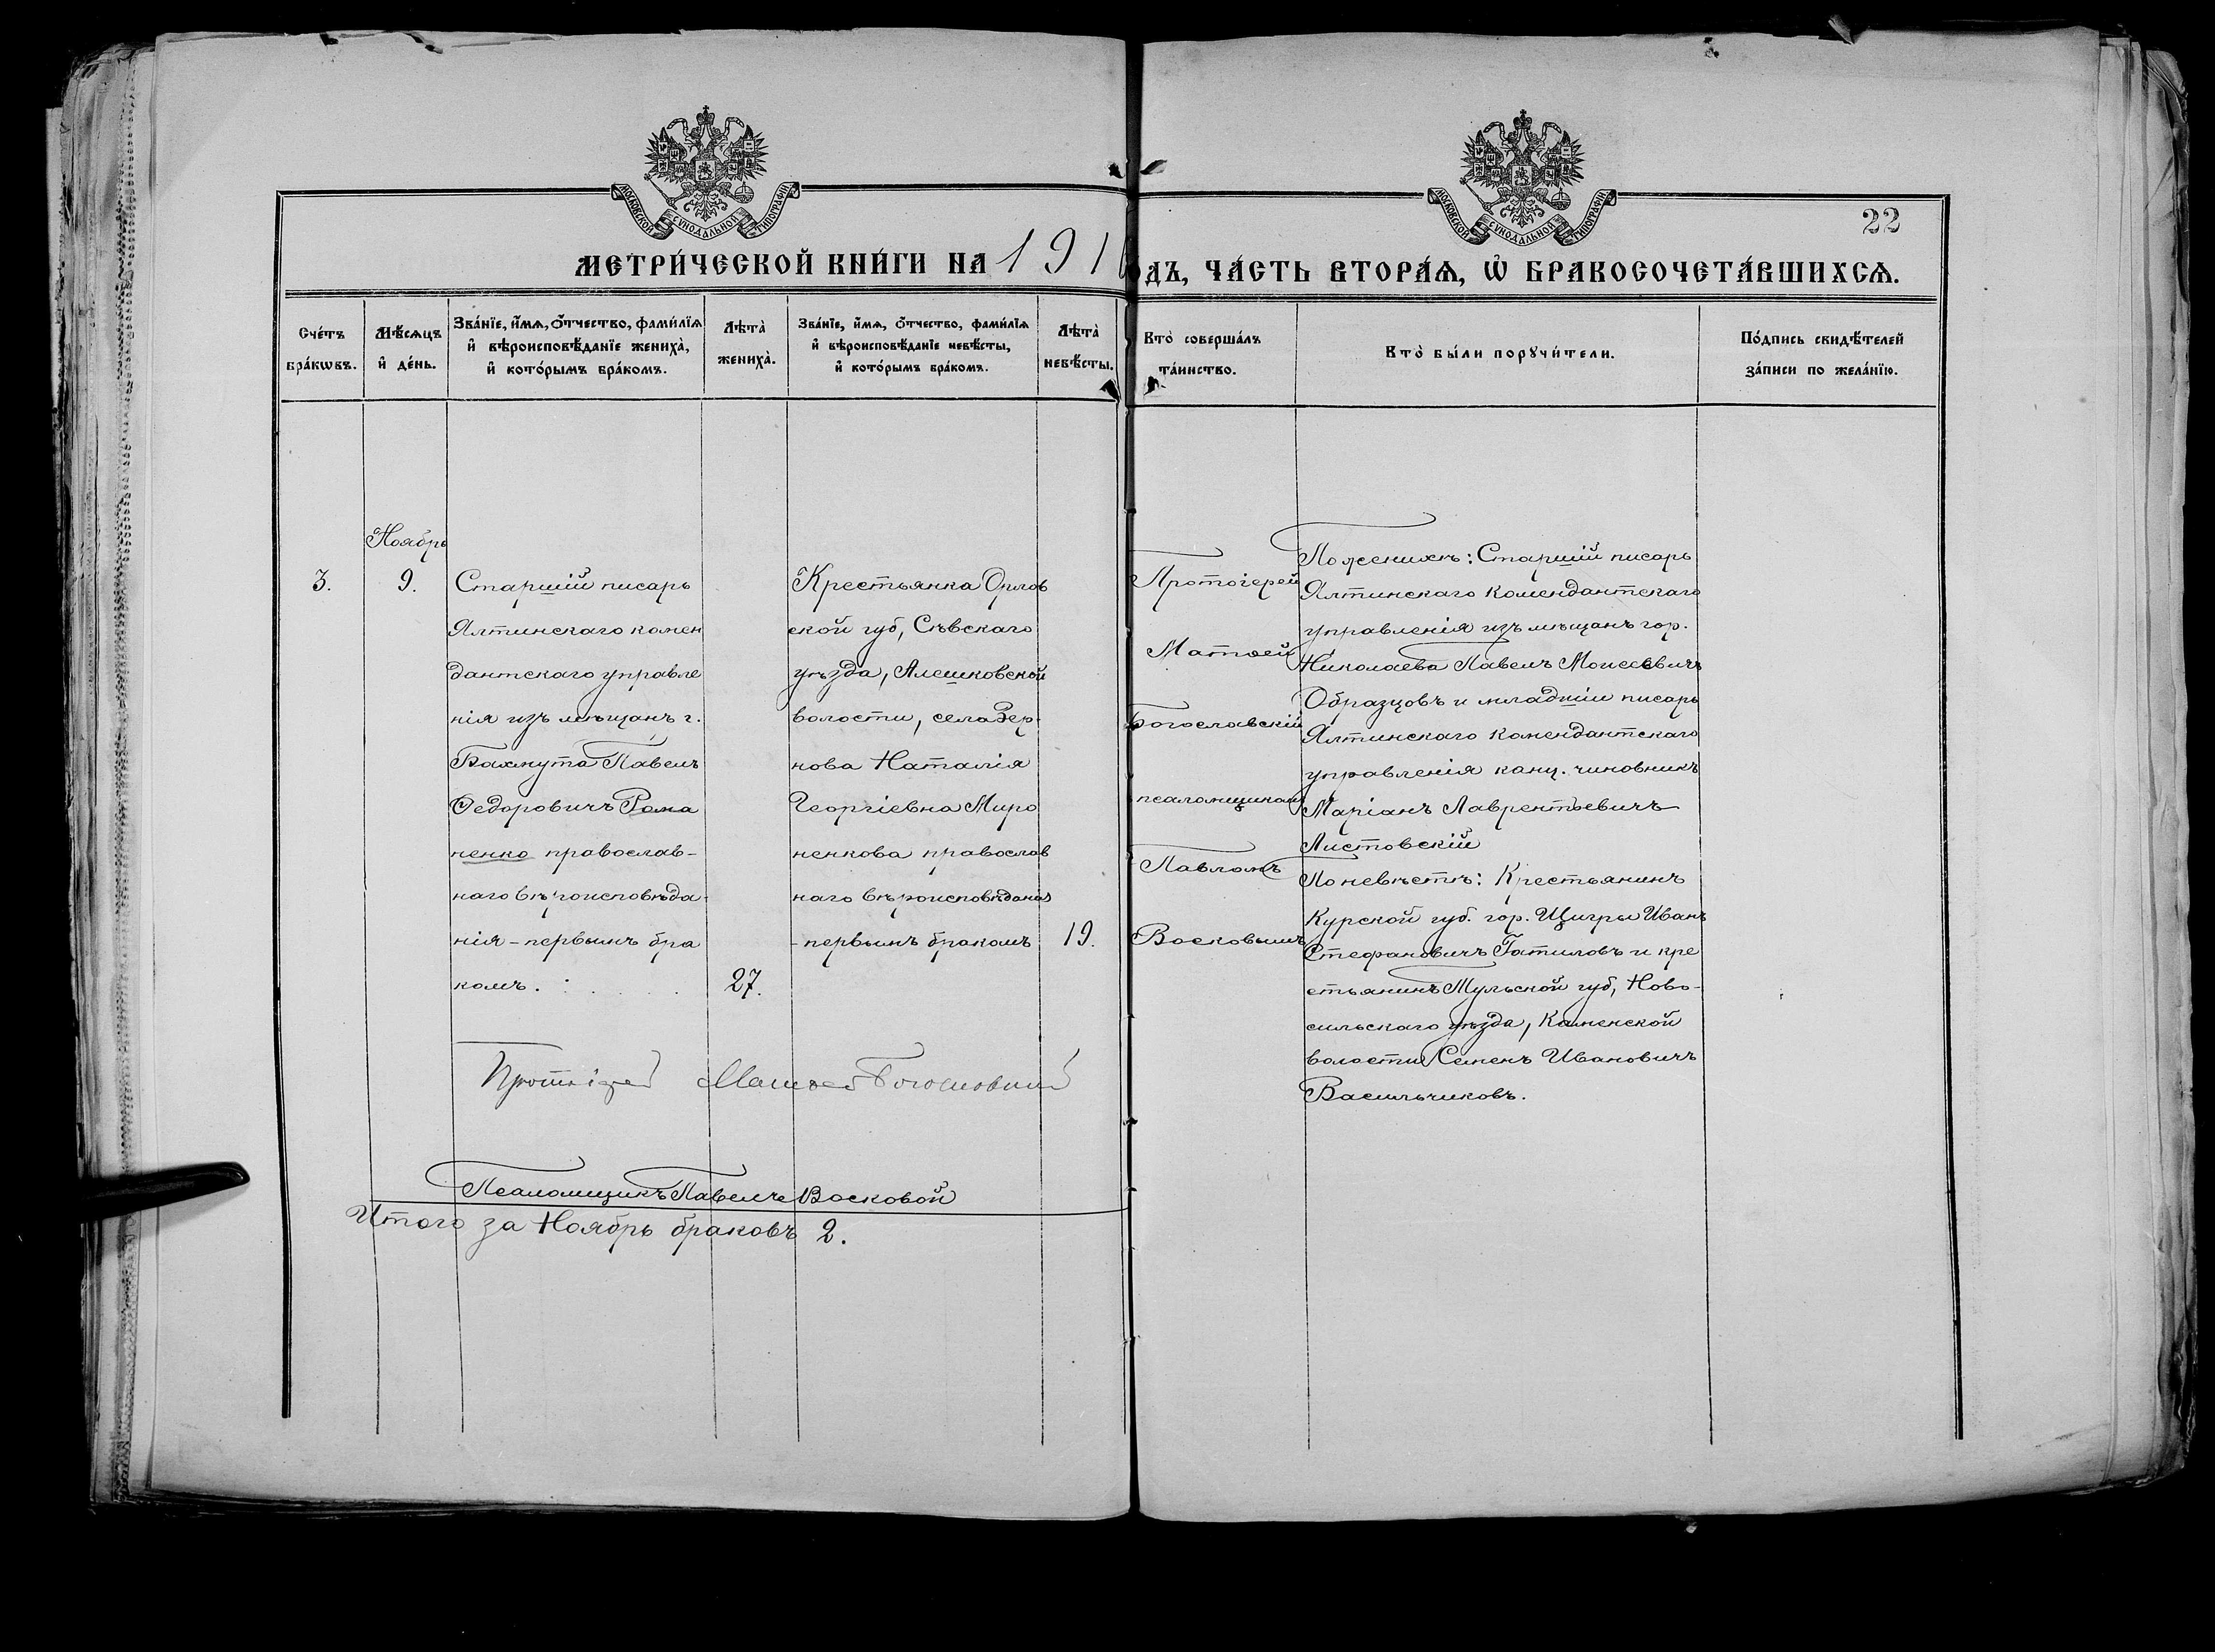 МОСКОВСКОЙ СѴНОДАЛЬНОЙ ТИПОГРАФІИ
МОСКОВСКОЙ СѴНОДАЛЬНОЙ ТИПОГРАФІИ
22
МЕТРИ́ЧЕСКОЙ КНИ́ГИ НА 191
ДЪ, ЧА́СТЬ ВТОРА́Ѧ, Ѡ҆ БРАКОСОЧЕТА́ВШИХСѦ.
Сче́тъ
бра́кѡвъ.
Мѣ́сѧцъ
и҆ де́нь.
Зва́нїе, и҆́мѧ, ѻ҆́тчество, фами́лїѧ
и҆ вѣроисповѣ́данїе жениха̀,
и҆ кото́рымъ бра́комъ.
Лѣта̀
жениха̀.
Зва́нїе, и҆́мѧ, ѻ҆́тчество, фами́лїѧ
и҆ вѣроисповѣ́данїе невѣ́сты,
и҆ кото́рымъ бра́комъ.
Лѣта̀
невѣ́сты.
Кто̀ соверша́лъ
та́инство.
Кто̀ бы́ли порꙋчи́тели.
По́дпись свидѣ́телей
за́писи по жела́нїю.
3.
Ноябрь
9.
Старшій писарь
Ялтинскаго комен
дантскаго управле
нія изъ мѣщанъ г.
Бахмута Павелъ
Федоровичъ Рома
ненко православ-
наго вѣроисповѣда-
нія - первымъ бра
комъ.
27.
Крестьянка Орлов
ской губ, Сѣвскаго
уѣзда, Алешковской
волости, села Зер
нова Наталія
Георгіевна Миро
ненкова православ
наго вѣроисповѣданія
- первымъ бракомъ
19.
Протоіерей
Матѳей
Богословскій
псаломщикомъ
Павломъ
Восковымъ
По женихѣ: Старшій писарь
Ялтинскаго Комендантскаго
управленія изъ мѣщанъ гор.
Николаева Павелъ Моисеевичъ
Образцовъ и младшій писарь
Ялтинскаго Комендантскаго
управленія канц. чиновникъ
Маріанъ Лаврентьевичъ
Листовскій
По невѣстѣ: Крестьянинъ
Курской губ. гор. Щигры Иванъ
Стефановичъ Гатиловъ и кре
стьянинъ Тульской губ, Ново-
сильскаго уѣзда, Каменской
волости Семенъ Ивановичъ
Васильчиковъ.
Протоіерей Матѳей Богословскій
Псаломщикъ Павелъ Восковой
Итого за Ноябрь браковъ 2.